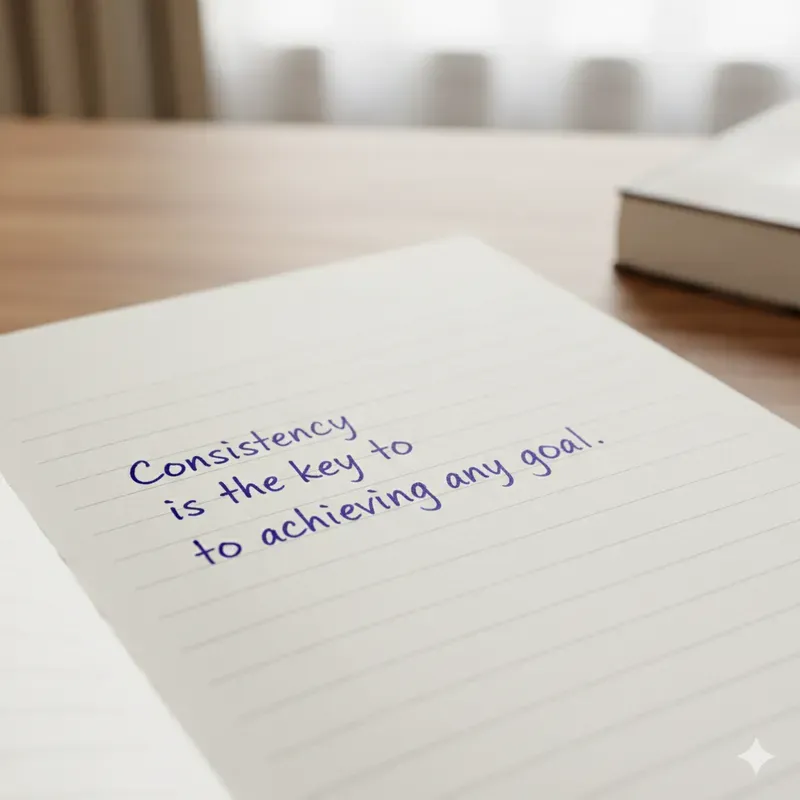 Consistency
is the key to
to achieving any goal.